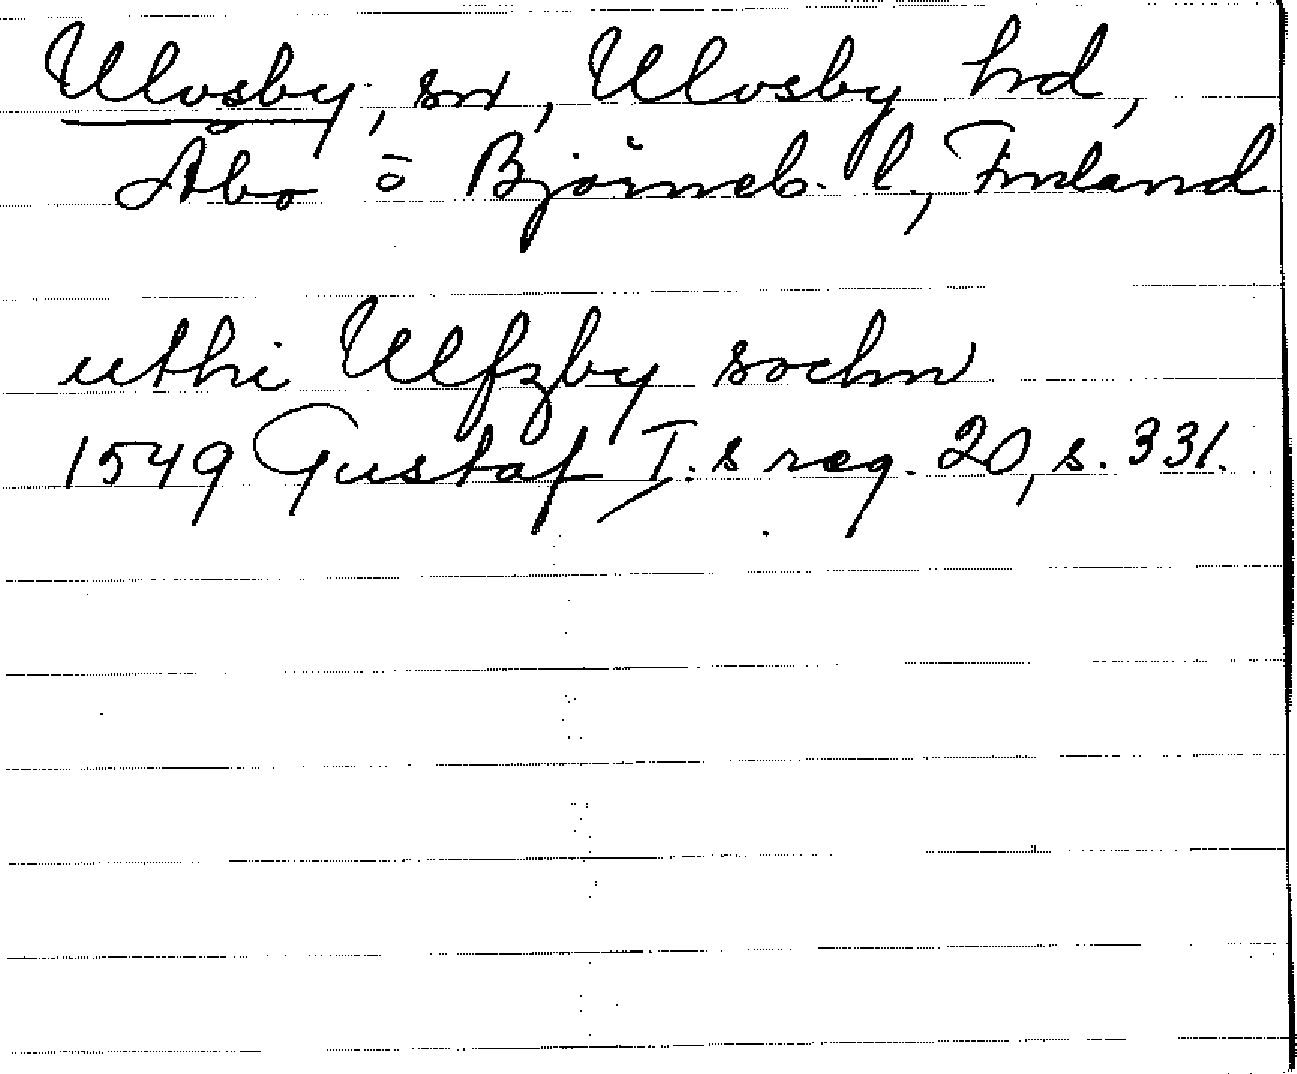 Ulvsby, sn, Ulvsby hd,
Åbo o Björneb. l., Finland
uthi Ulfzby sochn
1549 Gustaf I:s reg. 20, s. 331.